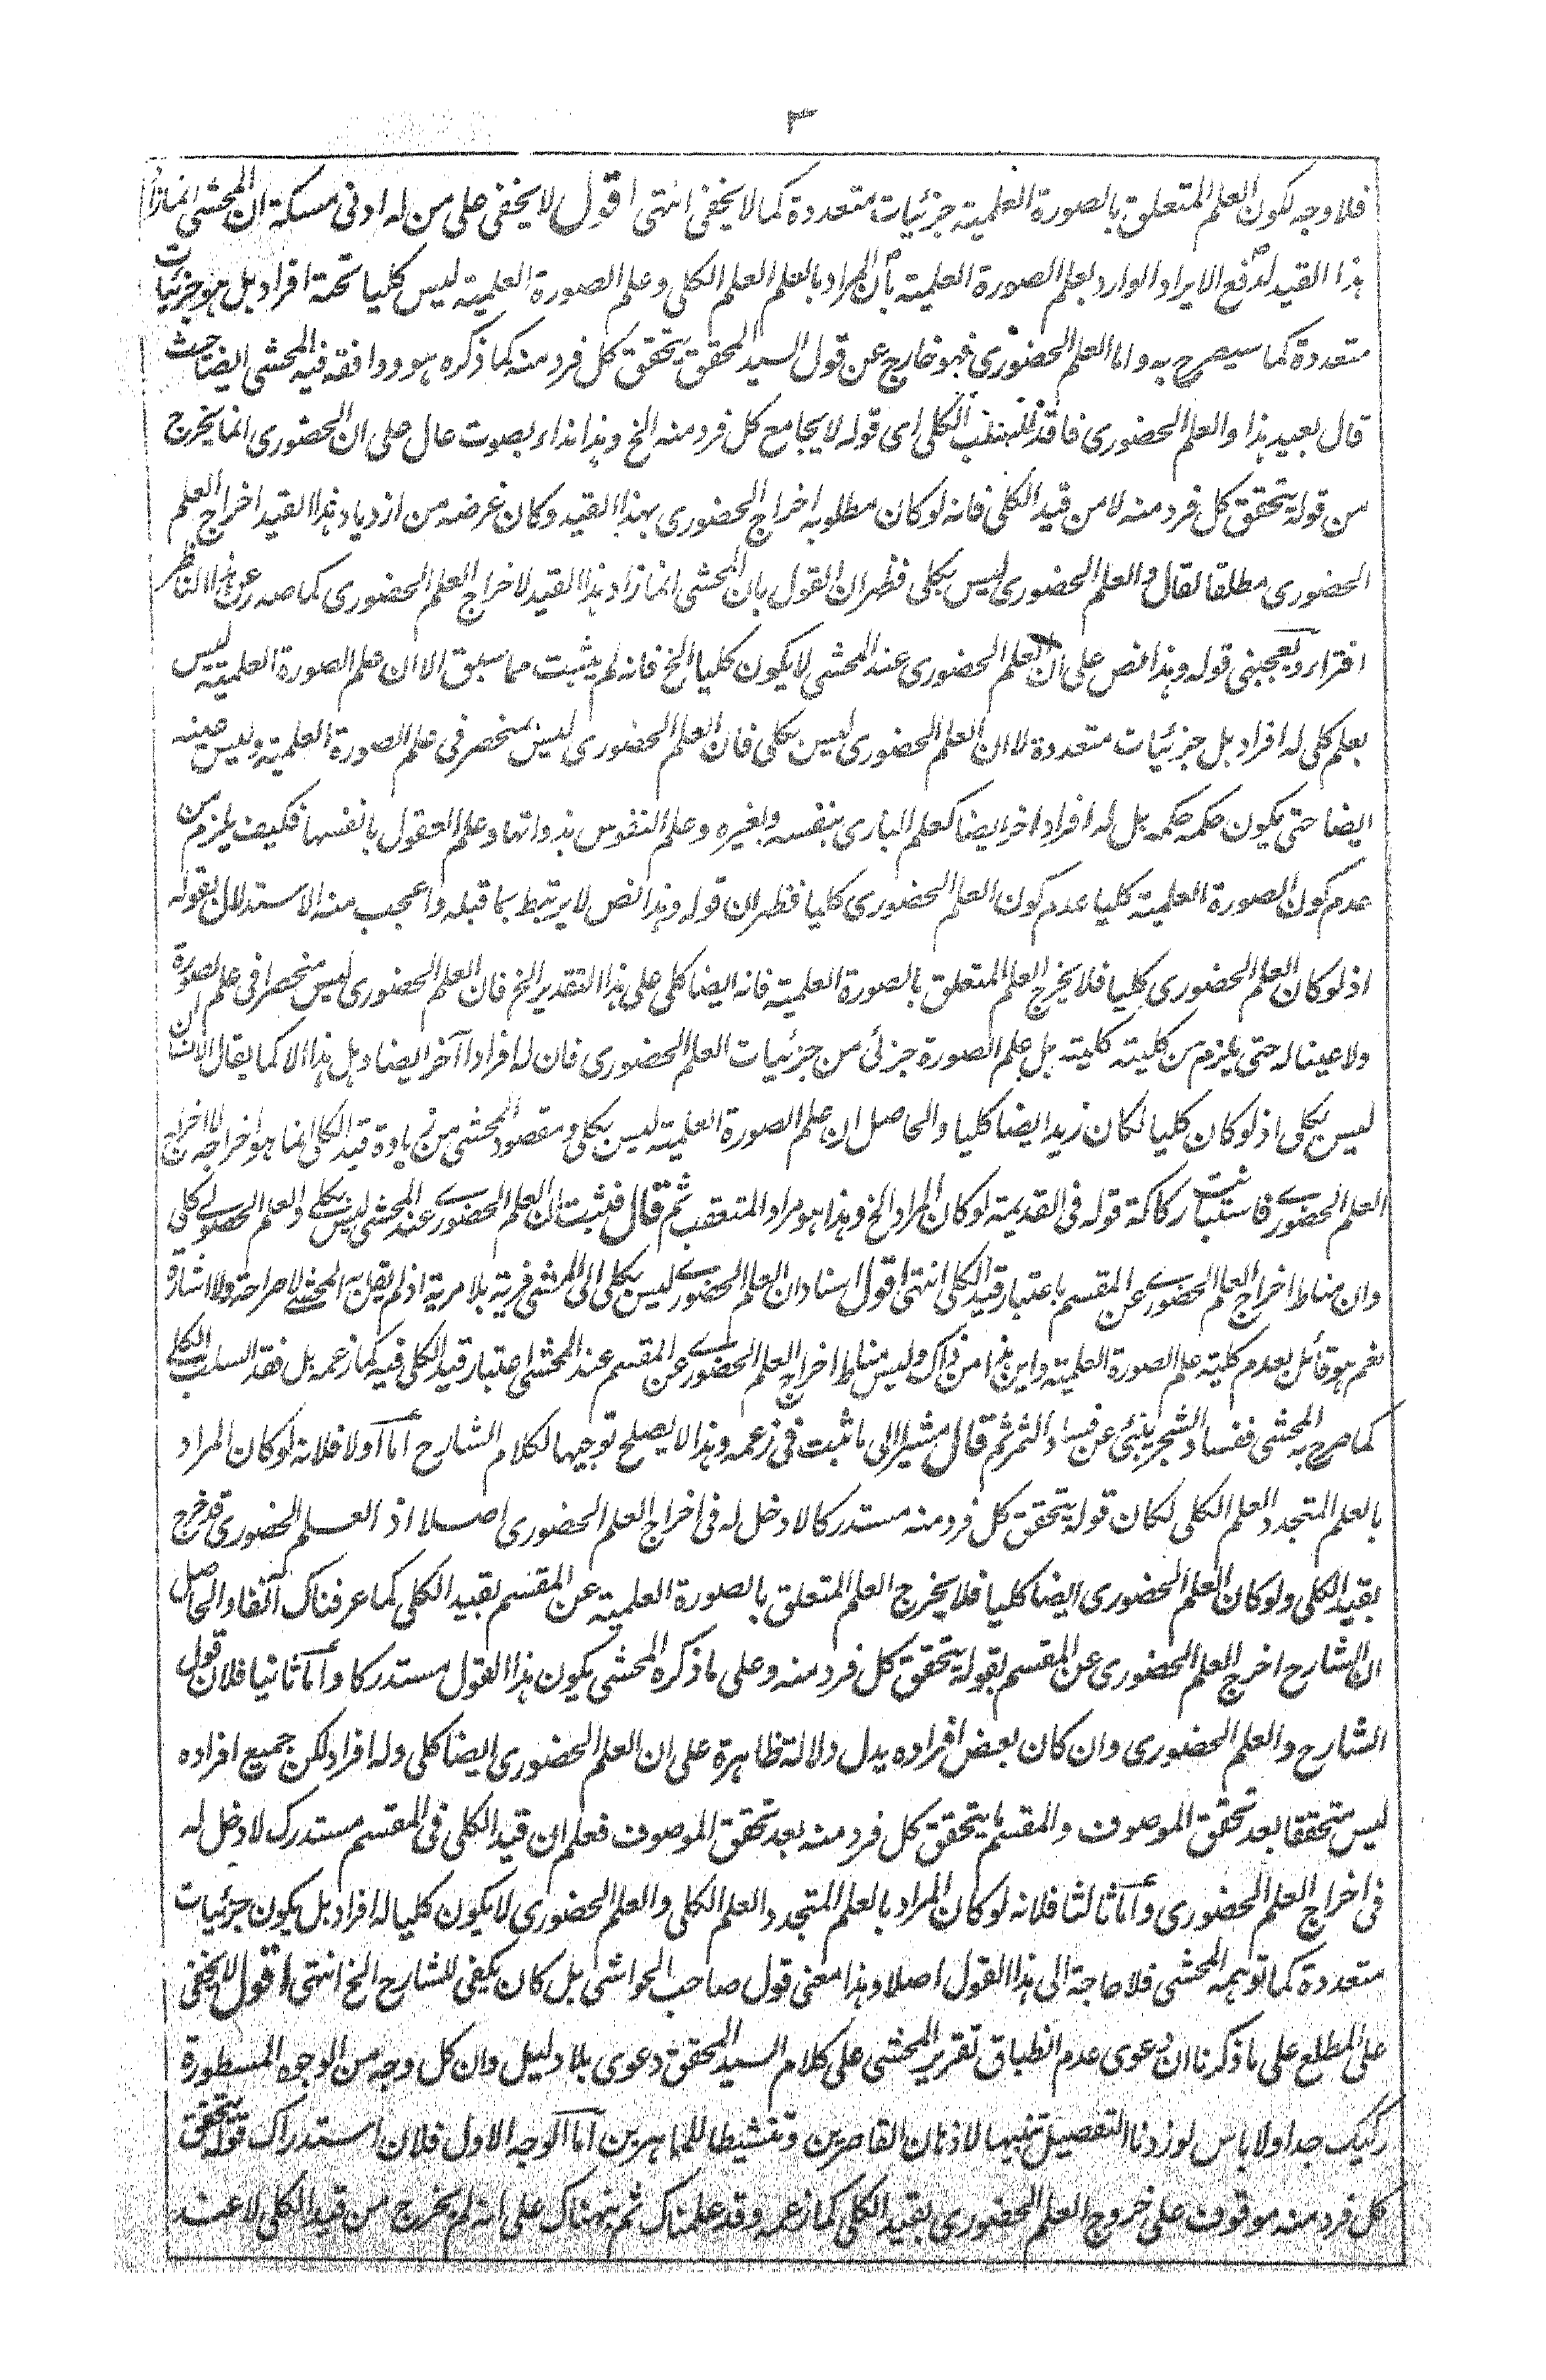 ٣
فلا وجه لكون العلم المتعلق بالصورة العلمية جزئيات متعددة كما لا يخفى انتهى اقول لا يخفى على من له ادنى مسكة ان المحشى انما زاد
هذا القيد لدفع الايراد الوارد بعلم الصورة العلمية بأن المراد بالعلم العلم الكلى وعلم الصورة العلمية ليس كليا تحته افراد بل هو جزئيات
متعددة كما سيصرح به واما العلم الحضورى فهو خارج عن قول السيد المحقق يتحقق كل فرد منه كما ذكره هو ووافقه فيه المحشى ايضا حيث
قال بعيد هذا والعلم الحضورى فاقد للسلب الكلى اى قوله لا يجامع كل فرد منه الخ وهذا نداء بصوت عال على ان الحضورى انما يخرج
من قوله يتحقق كل فرد منه لا من قيد الكلى فانه لو كان مطلوبه اخراج الحضورى بهذا القيد وكان غرضه من ازدياد هذا القيد اخراج العلم
الحضورى مطلقا لقال والعلم الحضورى ليس بكلى فظهر ان القول بان المحشى انما زاد هذا القيد لاخراج العلم الحضورى كما صدر عن هذا الناظر
افتراء ويعجبنى قوله وهذا نص على ان العلم الحضورى عند المحشى لا يكون كليا الخ فانه لم يثبت مما سبق الا ان علم الصورة العلمية ليس
بعلم كلى له افراد بل جزئيات متعددة لا ان العلم الحضورى ليس بكلى فان العلم الحضورى ليس بمنحصر فى علم الصورة العلمية وليس عينه
ايضا حتى يكون حكمه حكمه بل له افراد اخر ايضا كعلم البارى بنفسه وبغيره وعلم النفوس بذواتها وعلم العقول بانفسها فكيف يلزم من
عدم كون الصورة العلمية كليا عدم كون العلم الحضورى كليا فظهر ان قوله وهذا نص لا يرتبط بما قبله واعجب منه الاستدلال بقوله
اذ لو كان العلم الحضورى كليا فلا يخرج العلم المتعلق بالصورة العلمية فانه ايضا كلى على هذا التقدير الخ فان العلم الحضورى ليس منحصرا فى علم الصورة
ولا عينا له حتى يلزم من كليته كليته بل علم الصورة جزئى من جزئيات العلم الحضورى فان له افرادا آخر ايضا وهل هذا الا كما يقال الانسان
ليس بكلى اذ لو كان كليا لكان زيد ايضا كليا والحاصل ان علم الصورة العلمية ليس بكلى ومقصود المحشى من زيادة قيد الكلى انما هو اخراجه لا اخراج
العلم الحضورى فاستبانت ركاكة قوله فى القديمة لو كان المراد الخ وهذا هو مراد المتعقب ثم قال فثبت ان العلم الحضورى عند المحشى ليس بكلى والعلم الحصولى كلى
وان مناط اخراج العلم الحضورى عن المقسم باعتبار قيد الكلى انتهى اقول اسناد ان العلم الحضورى ليس بكلى الى المحشى فرية بلا مرية اذ لم يقل به المحشى لا صراحة ولا اشارة
نعم هو قائل بعدم كلية علم الصورة العلمية واين هذا من ذاك وليس مناط اخراج العلم الحضورى عن المقسم عند المحشى اعتبار قيد الكلى فيه كما زعمه بل فقد السلب الكلى
كما صرح به المحشى ففساد الشجر ينبئ عن فساد الثمر ثم قال مشيرا الى ما ثبت فى زعمه وهذا لا يصلح توجيها لكلام الشارح أما أولا فلانه لو كان المراد
بالعلم المتجدد العلم الكلى لكان قوله يتحقق كل فرد منه مستدركا لا دخل له فى اخراج العلم الحضورى اصلا اذ العلم الحضورى قد خرج
بقيد الكلى ولو كان العلم الحضورى ايضا كليا فلا يخرج العلم المتعلق بالصورة العلمية عن المقسم بقيد الكلى كما عرفناك آنفا والحاصل
ان الشارح اخرج العلم الحضورى عن المقسم بقوله يتحقق كل فرد منه وعلى ما ذكره المحشى يكون هذا القول مستدركا وأما ثانيا فلان قول
الشارح والعلم الحضورى وان كان بعض افراده يدل دلالة ظاهرة على ان العلم الحضورى ايضا كلى وله افراد لكن جميع افراده
ليس متحققا بعد تحقق الموصوف والمقسم ما يتحقق كل فرد منه بعد تحقق الموصوف فعلم ان قيد الكلى فى المقسم مستدرك لا دخل له
فى اخراج العلم الحضورى وأما ثالثا فلانه لو كان المراد بالعلم المتجدد العلم الكلى والعلم الحضورى لا يكون كليا له افراد بل يكون جزئيات
متعددة كما توهمه المحشى فلا حاجة الى هذا القول اصلا وهذا معنى قول صاحب الحواشى بل كان يكفى للشارح الخ انتهى اقول لا يخفى
على المطلع على ما ذكرنا ان دعوى عدم انطباق تقرير المحشى على كلام السيد المحقق دعوى بلا دليل وان كل وجه من الوجوه المسطورة
ركيك جدا ولا باس لو زدنا التفصيل تنبيها لاذهان القاصرين وتنشيطا للماهرين أما الوجه الاول فلان استدراك قوله يتحقق
كل فرد منه موقوف على خروج العلم الحضورى بقيد الكلى كما زعمه وقد علمناك ثم نبهناك على انه لم يخرج من قيد الكلى لا عند